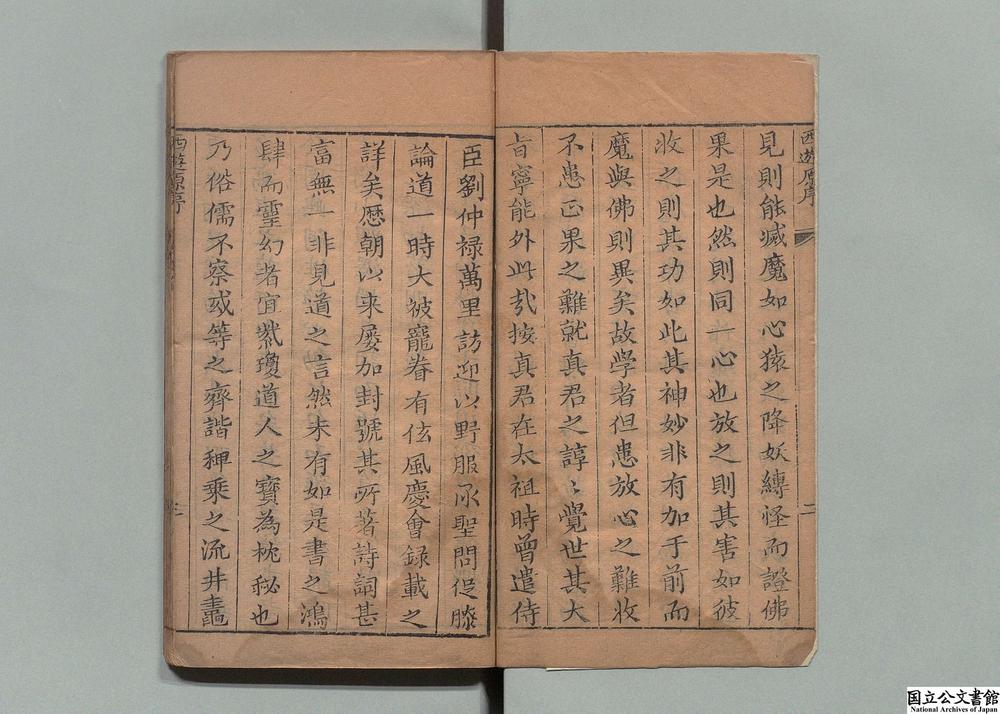 西遊原序
二
見則能滅魔如心猿之降妖縛怪而證佛
果是也然則同一心也放之則其害如彼
收之則其功如此其神妙非有加于前而
魔與佛則異矣故學者但患放心之難收
不患正果之難就真君之諄〻覺世其大
旨寧能外此哉按真君在太祖時曾遣侍
臣劉仲祿萬里訪迎以野服承聖問促膝
論道一時大被寵眷有佐風慶會錄載之
詳矣歷朝以來屡加封號其所著詩詞甚
富無一非見道之言然未有如是書之鴻
肆而靈幻者宜紫瓊道人之寶為枕秘也
乃俗儒不察或等之齊諧稗乘之流井蠡
西遊原序
國立公文書館
National Archives of Japan